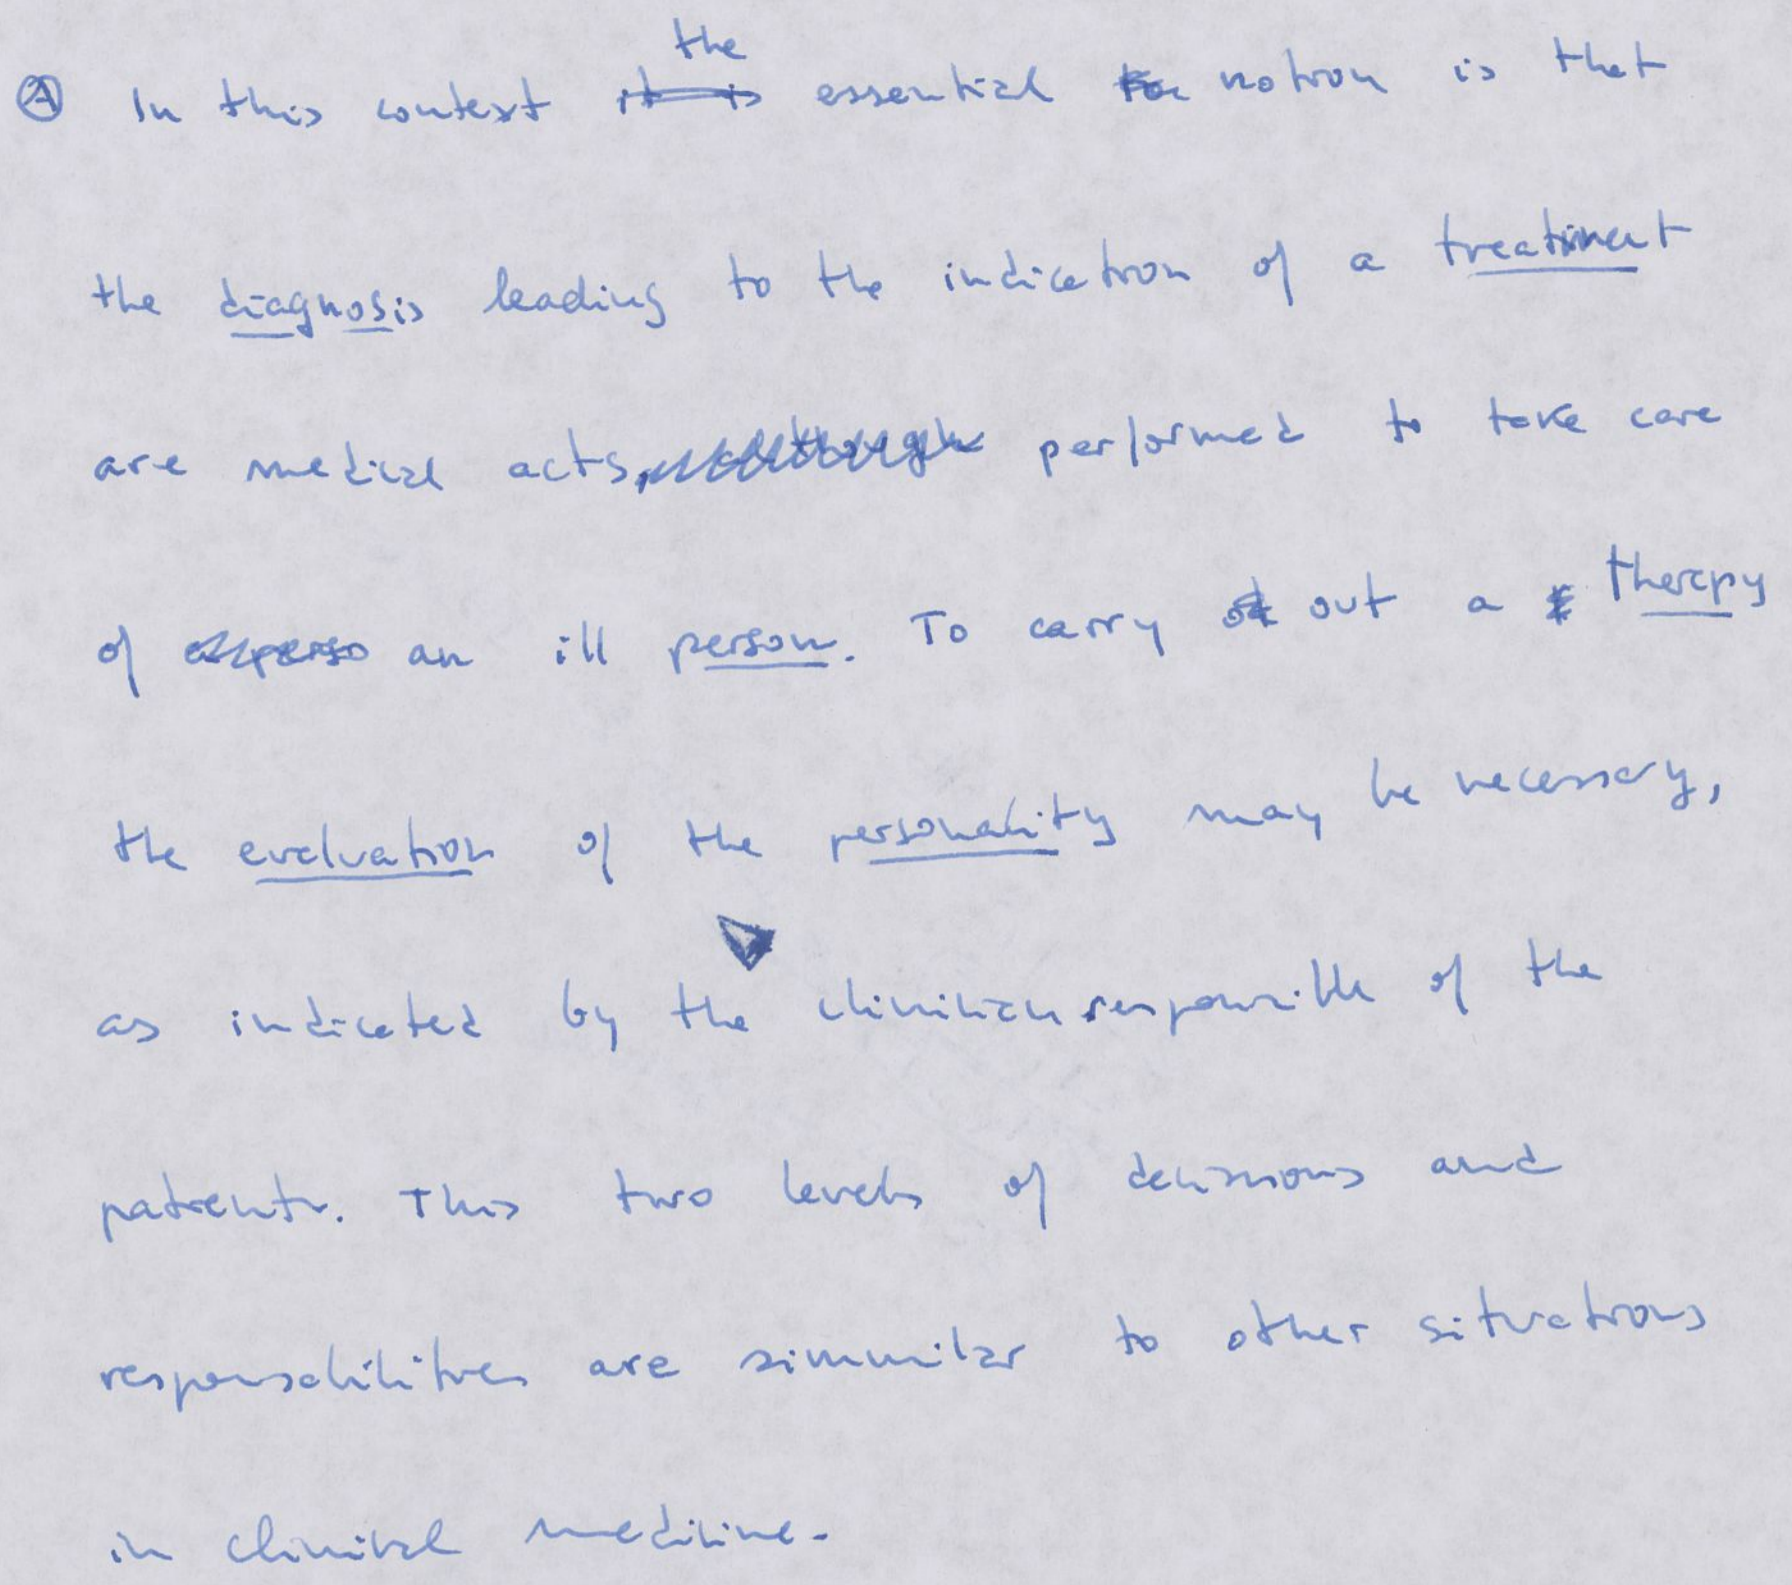 Ⓐ In this context the essential notion is that
the diagnosis leading to the indication of a treatment
are medical acts, performed to take care
of an ill person. To carry out a therapy
the evaluation of the personality may be necessary,
as indicated by the clinician responsible of the
patients. This two levels of decisions and
responsabilities are simmilar to other situations
in clinical medicine.